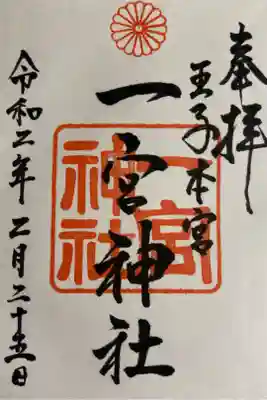 奉拝
王子本宮
一宮神社
一宮神社
令和二年二月二十五日